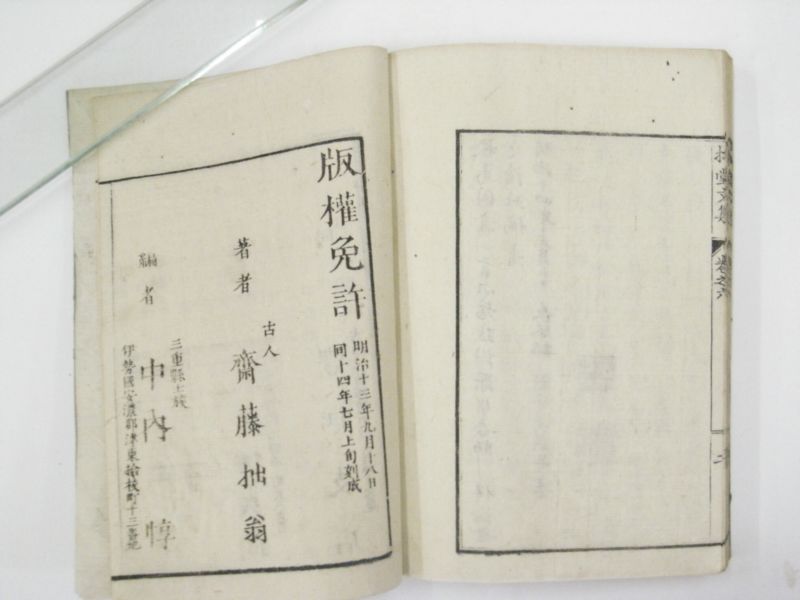 拙堂文集
卷之六
版權免許
明治十三年九月十八日
同十四年七月上旬刻成
古人
著者 齋藤拙翁
三重縣士族
編者 中內惇
伊勢國安濃郡津東
町十三番地